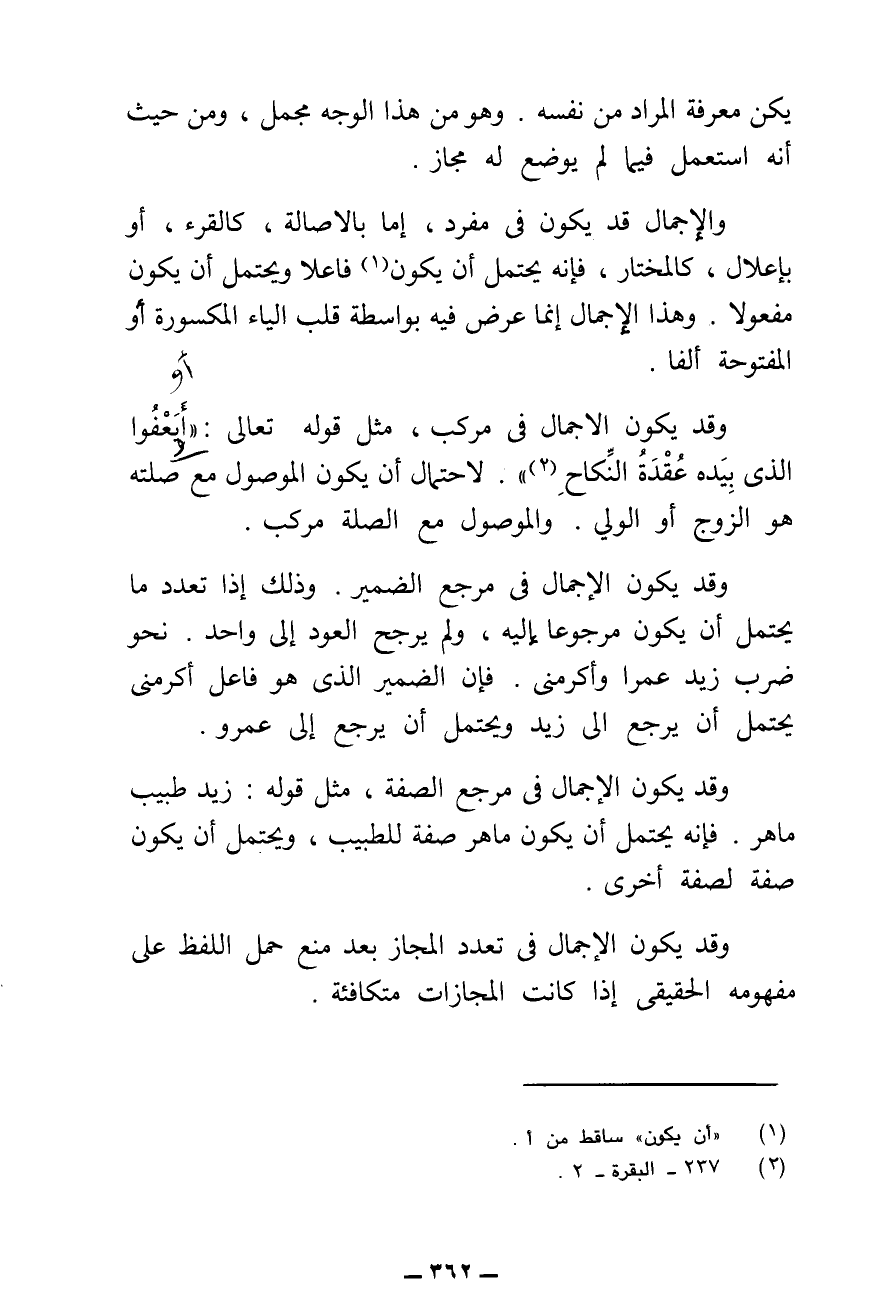 يكن معرفة المراد من نفسه . وهو من هذا الوجه مجمل ، ومن حيث
أنه استعمل فيما لم يوضع له مجاز .
والإجمال قد يكون فى مفرد ، إما بالاصالة ، كالقرء ، أو
بإعلال ، كالمختار ، فإنه يحتمل أن يكون(١) فاعلا ويحتمل أن يكون
مفعولا . وهذا الإجمال إنما عرض فيه بواسطة قلب الياء المكسورة أو
المفتوحة ألفا .
أو
وقد يكون الاجمال فى مركب ، مثل قوله تعالى : «أَيَعْفُوا
الذى بِيَده عُقْدَةُ النِّكاحِ (٢)» . لاحتمال أن يكون الموصول مع صلته
هو الزوج أو الولي . والموصول مع الصلة مركب .
وقد يكون الإجمال فى مرجع الضمير . وذلك إذا تعدد ما
يحتمل أن يكون مرجوعا إليه ، ولم يرجح العود إلى واحد . نحو
ضرب زيد عمرا وأكرمنى . فإن الضمير الذى هو فاعل أكرمنى
يحتمل أن يرجع الى زيد ويحتمل أن يرجع إلى عمرو .
وقد يكون الإجمال فى مرجع الصفة ، مثل قوله : زيد طبيب
ماهر . فإنه يحتمل أن يكون ماهر صفة للطبيب ، ويحتمل أن يكون
صفة لصفة أخرى .
وقد يكون الإجمال فى تعدد المجاز بعد منع حمل اللفظ على
مفهومه الحقيقى إذا كانت المجازات متكافئة .
(١) «أن يكون» ساقط من أ .
(٢) ٢٣٧ ـ البقرة ـ ٢ .
ـ ٣٦٢ ـ